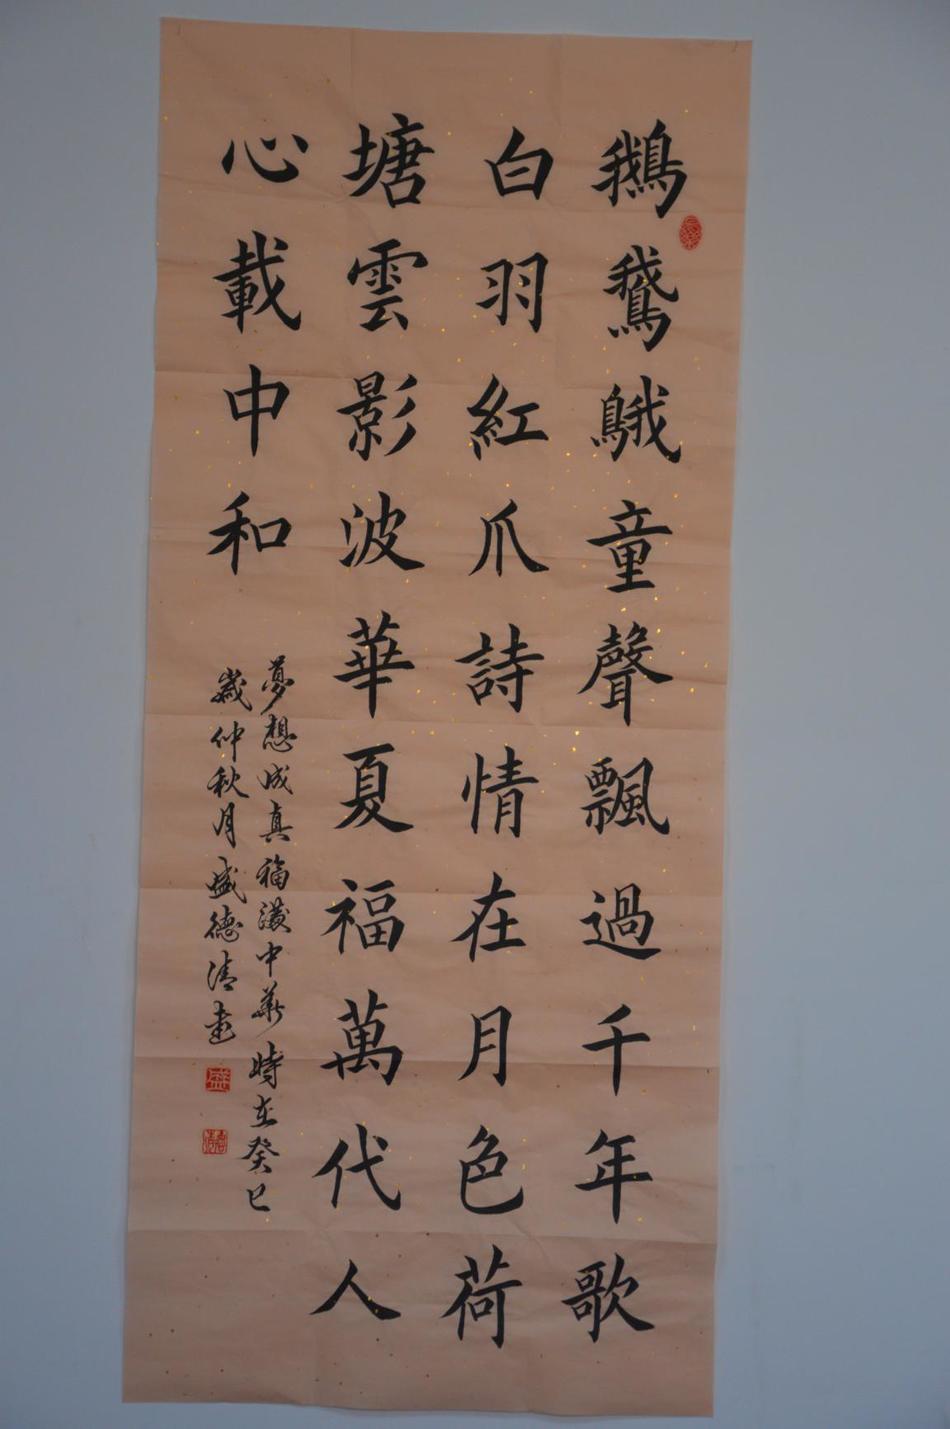 鵝鵞䳘童聲飄過千年歌
白羽紅爪詩情在月色荷
塘雲影波華夏福萬代人
心載中和
夢想成真福滿中華時在癸巳
歲仲秋月盛德清書